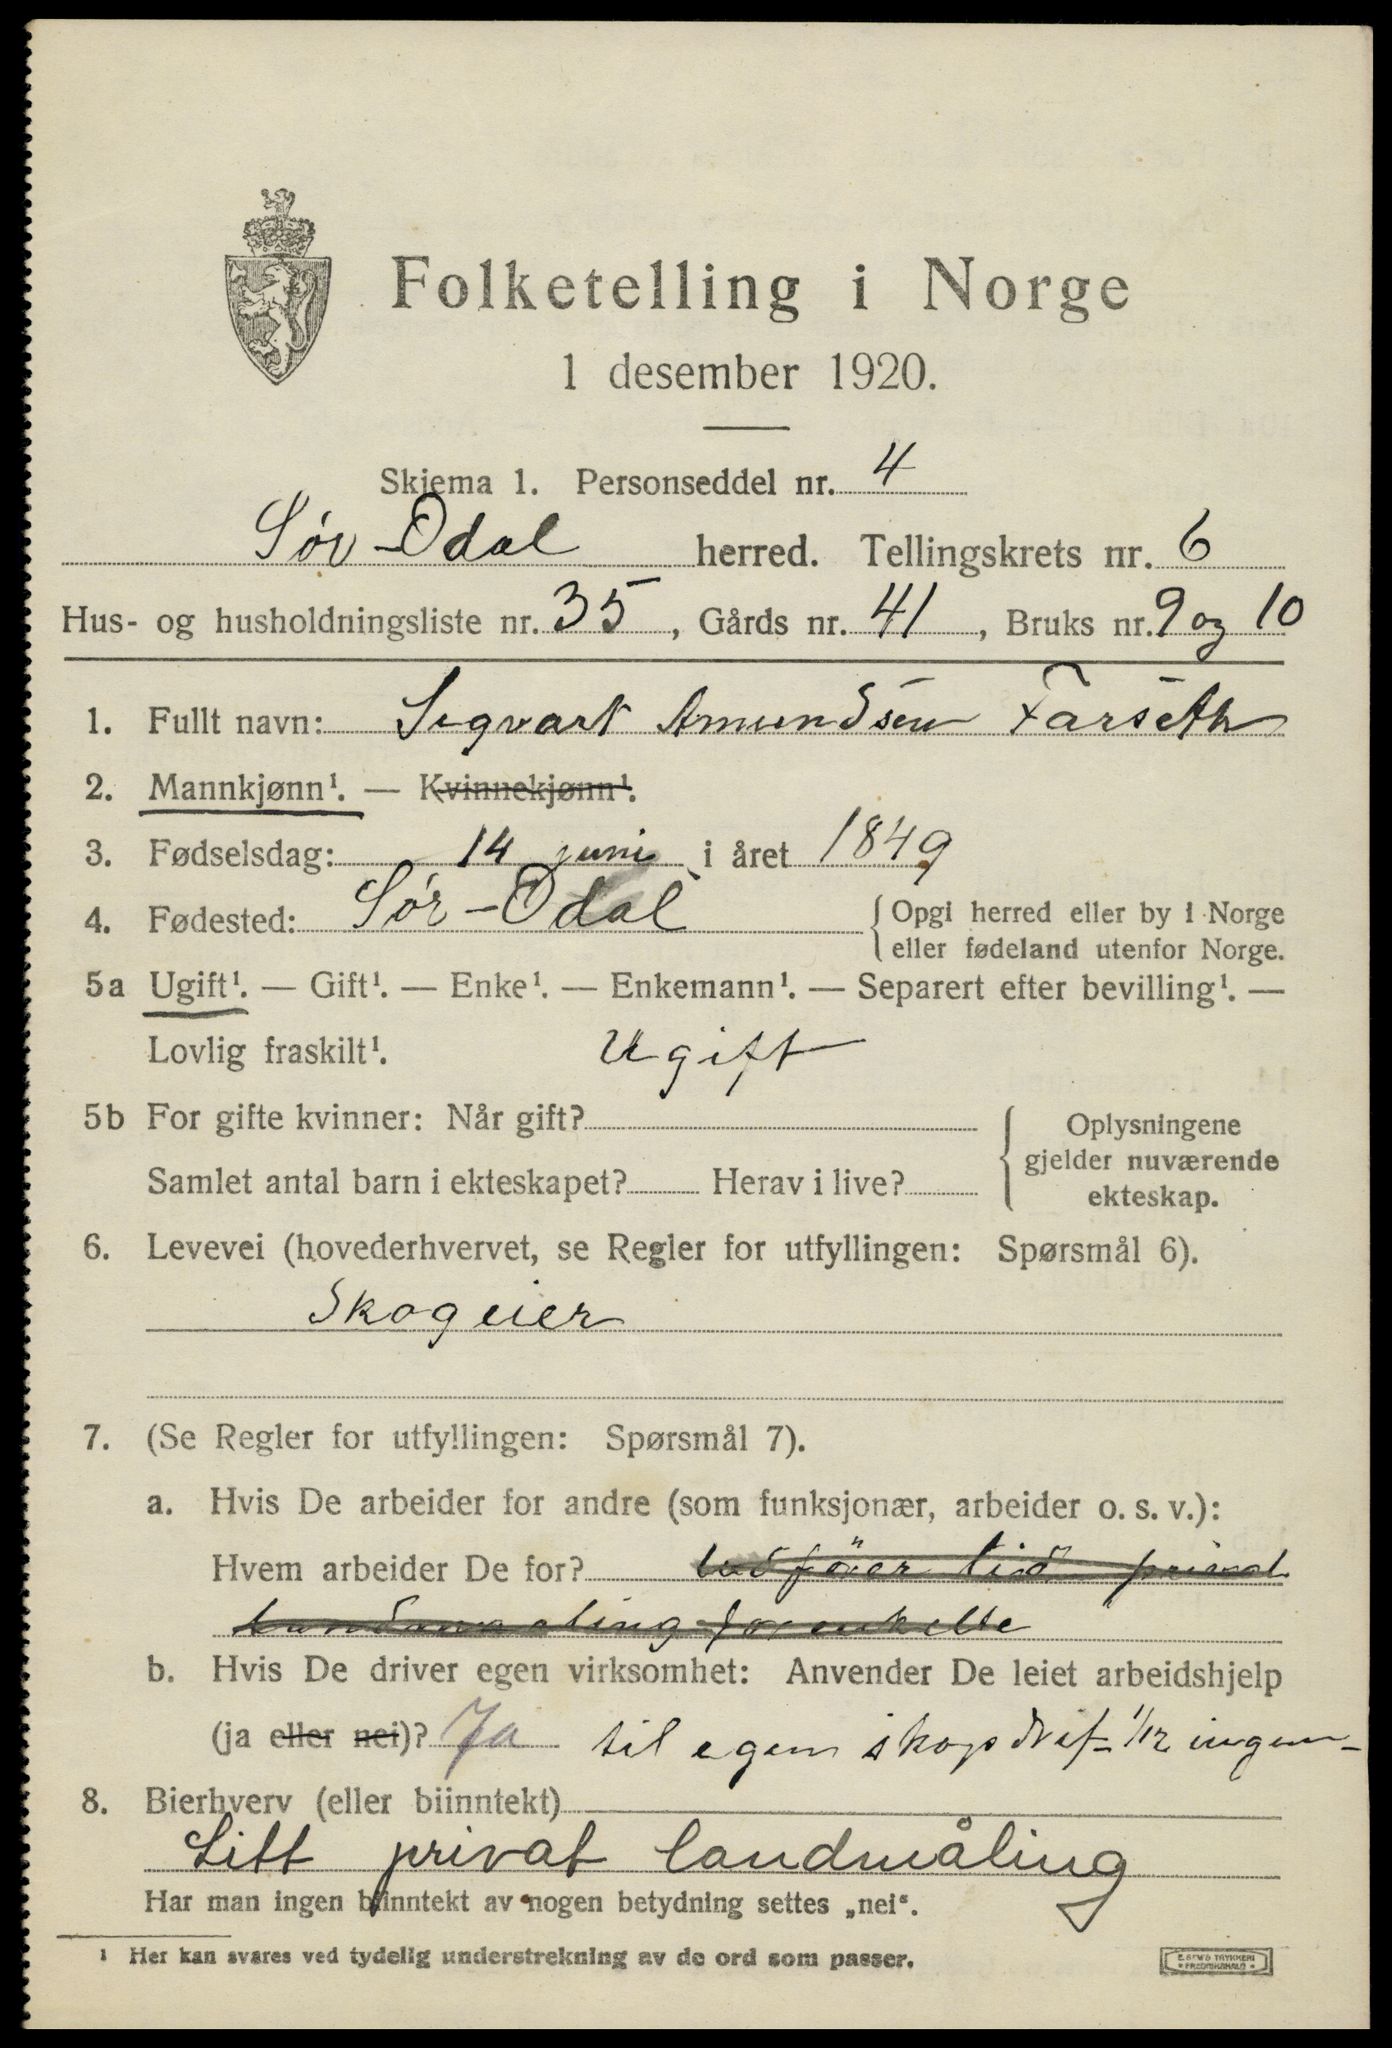 Folketelling i Norge
1 desember 1920.
Skjema 1. Personseddel nr. 4
Sør-Odal herred. Tellingskrets nr. 6
Hus- og husholdningsliste nr. 35, Gårds nr. 41, Bruks nr. 9 og 10
1. Fullt navn: Sigvart Amundsen Farseth
2. Mannkjønn¹. — Kvinnekjønn¹.
3. Fødselsdag: 14 juni i året 1849
4. Fødested: Sør-Odal {Opgi herred eller by i Norge
eller fødeland utenfor Norge.
5a Ugift¹. — Gift¹. — Enke¹. — Enkemann¹. — Separert efter bevilling¹. —
Lovlig fraskilt¹. Ugift
5b For gifte kvinner: Når gift? Oplysningene
gjelder nuværende
Samlet antal barn i ekteskapet? Herav i live? ekteskap.
6. Levevei (hovederhvervet, se Regler for utfyllingen: Spørsmål 6).
Skogeier
7. (Se Regler for utfyllingen: Spørsmål 7).
a. Hvis De arbeider for andre (som funksjonær, arbeider o. s. v.):
Hvem arbeider De for? udföer tid privat
landmaaling for enkelte
b. Hvis De driver egen virksomhet: Anvender De leiet arbeidshjelp
(ja eller nei)? Ja til egen skogdrif- 1/12 ingen-
8. Bierhverv (eller biinntekt)
Litt privat landmåling
Har man ingen biinntekt av nogen betydning settes „nei“.
¹ Her kan svares ved tydelig understrekning av de ord som passer.
E. SEMS TRYKKERI
FREDRIKSHALD